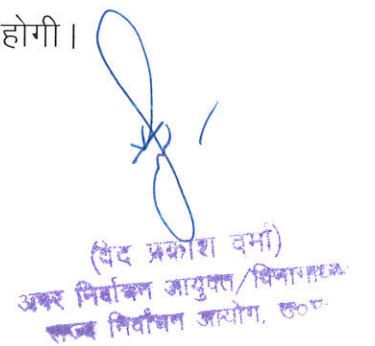 होगी।
(वेद प्रकाश वर्मा)
अपर निर्वाचन आयुक्त/
राज्य निर्वाचन आयोग, उ०प्र०